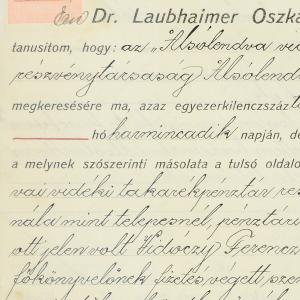 Én Dr. Laubhaimer Oszká
tanusítom, hogy: az „Alsólendva vid
részvénytársaság Alsólend
megkeresésére ma, azaz egyezerkilenczszázt
hó harmincadik napján, de
a melynek szószerinti másolata a tulsó oldalo
vai vidéki takarékpénztár rés
nála mint telepesnél, pénztára
ott jelen volt Vidóczy Ferencz
főkönyvelőnek fizetés végett sze